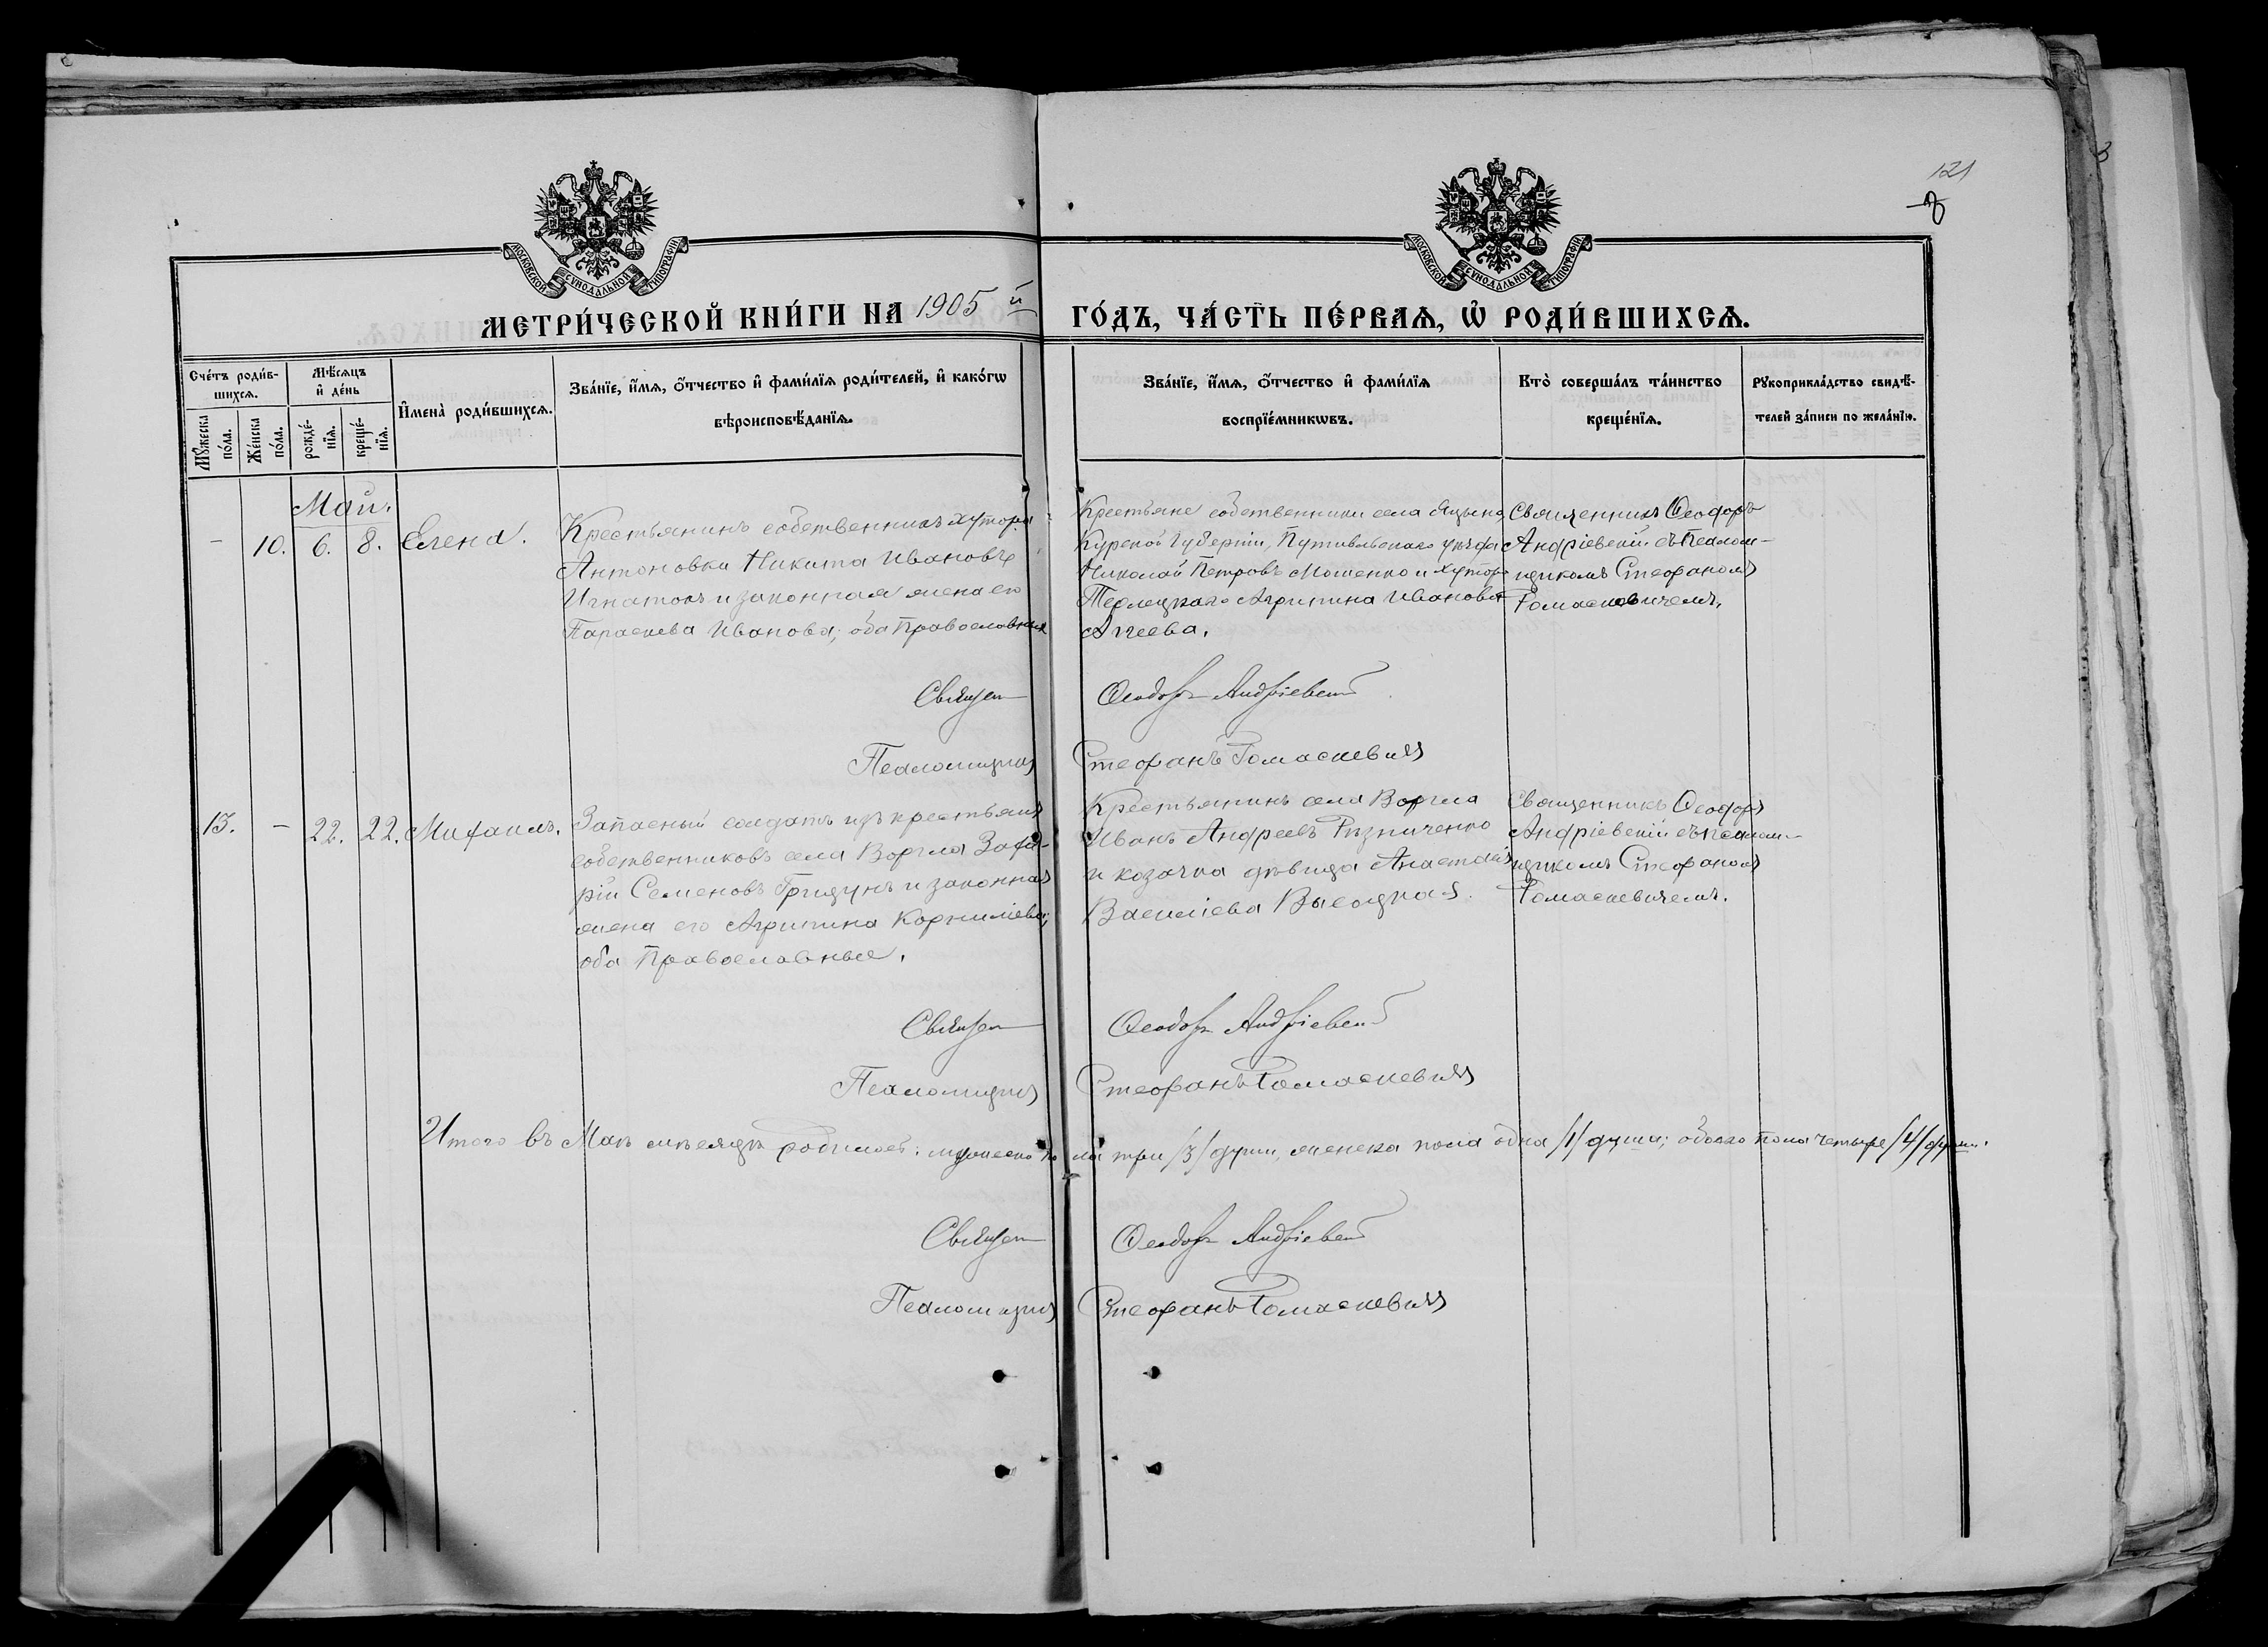 121
МОСКОВСКОЙ СѴНОДАЛЬНОЙ ТИПОГРАФІИ
МОСКОВСКОЙ СѴНОДАЛЬНОЙ ТИПОГРАФІИ
МЕТРИ́ЧЕСКОЙ КНИ́ГИ НА 1905 й ГО́ДЪ, ЧА́СТЬ ПЕ́РВАѦ, Ѡ҆ РОДИ́ВШИХСѦ.
Сче́тъ роди́в-
шихсѧ.
Мꙋ́жеска
по́ла.
Же́нска
по́ла.
Мѣ́сѧцъ
и҆ де́нь
рожде́-
нїѧ.
креще́-
нїѧ.
И҆мена̀ роди́вшихсѧ.
Зва́нїе, и҆́мѧ, ѻ҆́тчество и҆ фами́лїѧ роди́телей, и҆ како́гѡ
вѣроисповѣ́данїѧ.
Зва́нїе, и҆́мѧ, ѻ҆́тчество и҆ фами́лїѧ
воспрїе́мникѡвъ.
Кто̀ соверша́лъ та́инство
креще́нїѧ.
Рꙋкоприкла́дство свидѣ́-
телей за́писи по жела́нїю.
Май.
- 10. 6. 8. Елена.
Крестьянинъ собственникъ хутора
Антоновки Никита Ивановъ
Игнатокъ и законная жена его
Параскева Иванова; оба Православные
Крестьяне собственники села
Курской Губерніи, Путивльскаго уѣзда
Николай Петровъ Мошенко и хутора
Терлецкаго Агрипина Иванова
Священникъ Ѳеодоръ
Андріевскій съ Псалом-
щикомъ Стефаномъ
Ромаскевичемъ.
Священ Ѳеодоръ Андріевскій
Псаломщикъ Стефанъ Ромаскевичъ
13. - 22. 22. Михаилъ.
Запасный солдатъ изъ крестьянъ
собственниковъ села Воргла Заха-
рій Семеновъ Грицунъ и законная
жена его Агрипина Корниліева;
оба Православные.
Крестьянинъ села Воргла
Иванъ Андреевъ Ризниченко
и козачка дѣвица Анастасія
Василіева Высоцкая.
Священникъ Ѳеодоръ
Андріевскій съ псалом-
щикомъ Стефаномъ
Ромаскевичемъ.
Священ Ѳеодоръ Андріевскій
Псаломщикъ Стефанъ Ромаскевичъ
Итого въ Маѣ мѣсяцѣ родилось: мужеска пола три /3/ души, женска пола одна /1/ душа; обоего пола четыре /4/ души.
Священ Ѳеодоръ Андріевскій
Псаломщикъ Стефанъ Ромаскевичъ